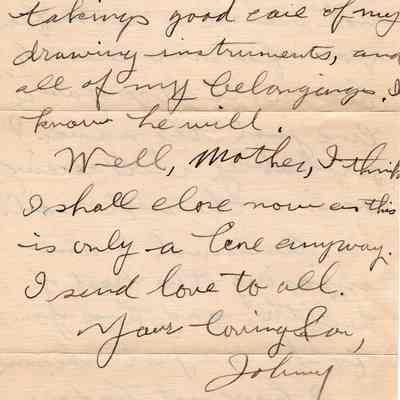 taking good care of my
drawing instruments, and
all of my belongings. I
know he will.
Well, Mother, I think
I shall close now as this
is only a line anyway.
I send love to all.
Your loving Son,
Johnny